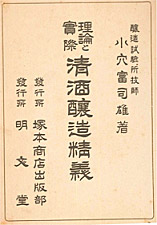 釀造試驗所技師
小穴富司雄著
理論と
實際
清酒釀造精義
發行所
塚本商店出版部
發行所
明文堂